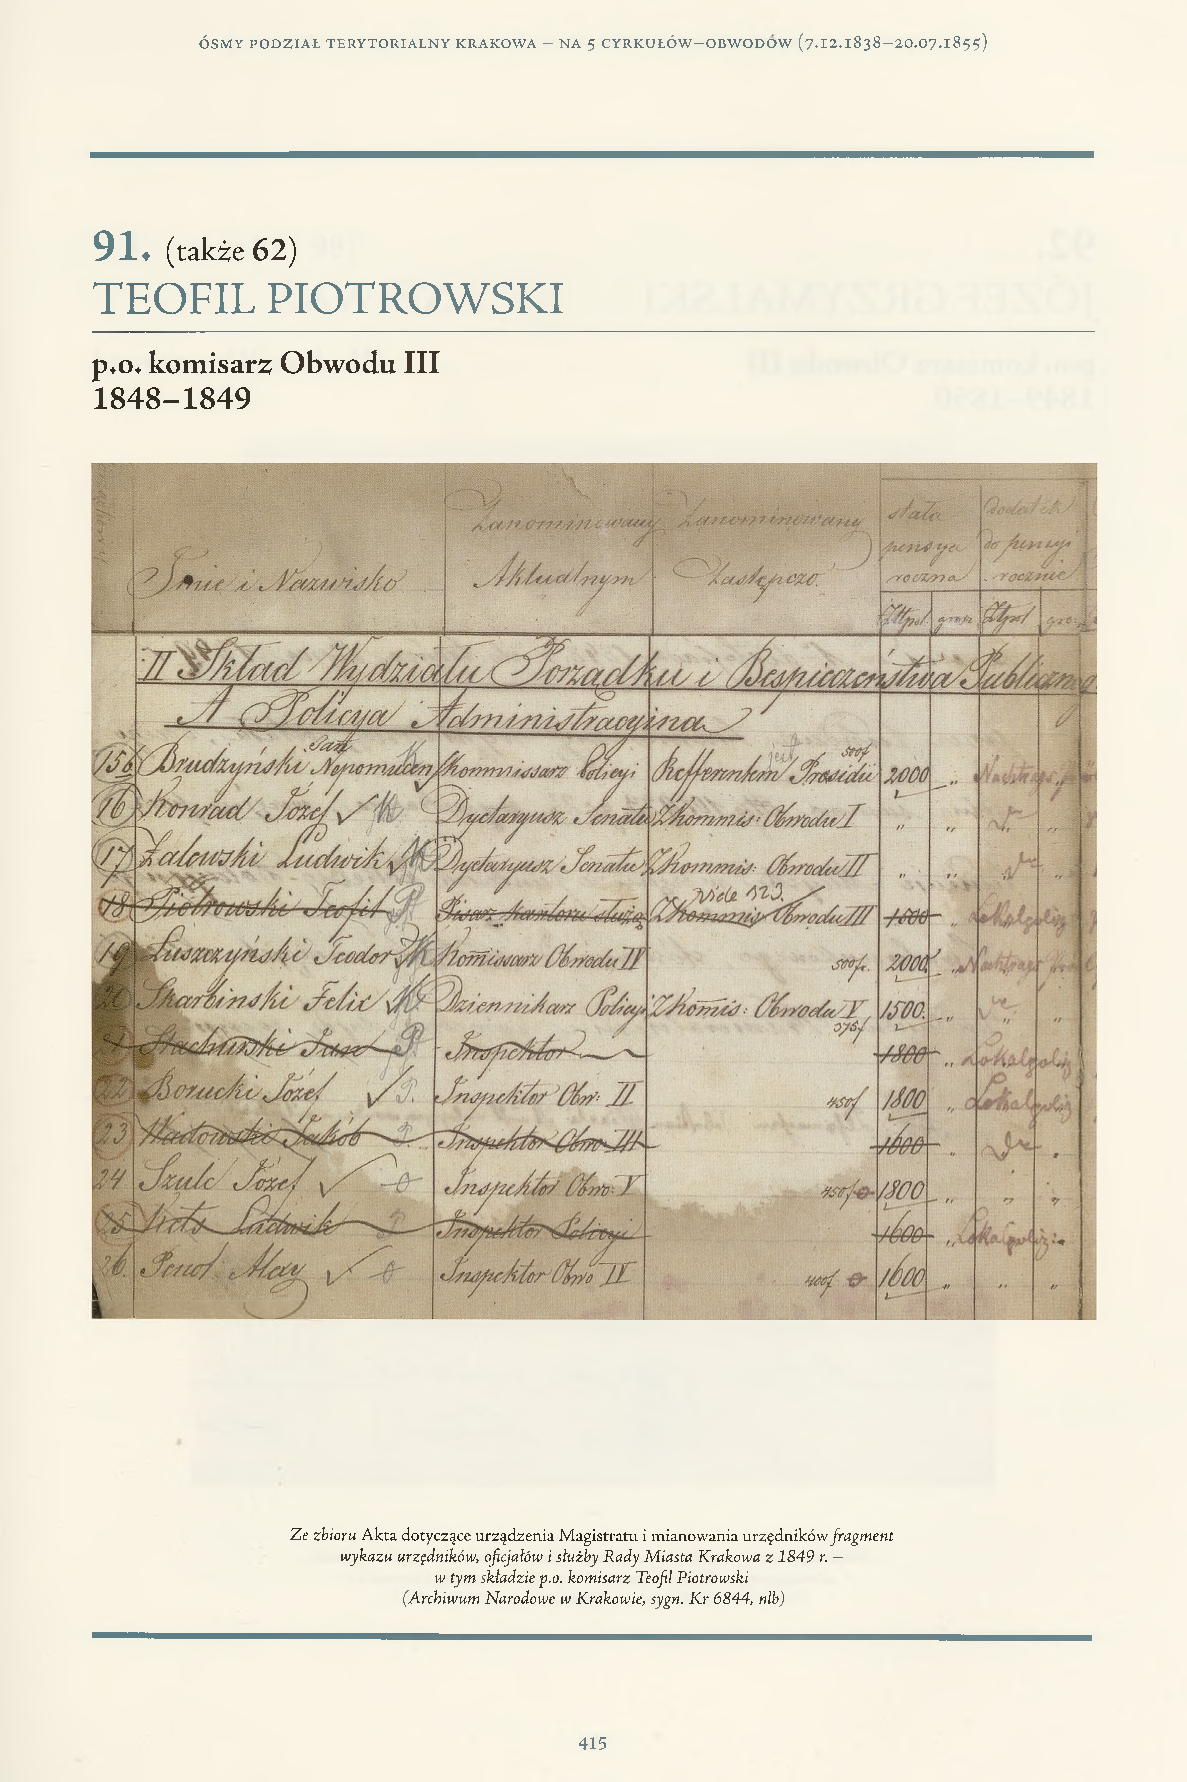 ÓSMY PODZIAŁ TERYTORIALNY KRAKOWA – NA 5 CYRKUŁÓW–OBWODÓW (7.12.1838–20.07.1855)
91. (także 62)
TEOFIL PIOTROWSKI
p.o. komisarz Obwodu III
1848–1849
Imie i Nazwisko Zanominowany Aktualnym Zanominowany Zastępczo stała pensya roczna dodatek do pensyi rocznie
Złtpol grosz Złtpol gro
II Skład Wydziału Porządku i Bespieczeństwa Publiczneg
A Policya Administracyina
15 Brudzyński Jan Nepomucen Kommissarz Policyi Refferentem Prosidii 500f 2000 „
16 Konrad Józef Dyetaryusz Senatu Z Kommis: Obwodu I „ „ „
17 Zalowski Ludwik Dyetaryusz Senatu Z Kommis: Obwodu II „ „ „
vide 123.
18 Piotrowski Teofil P. Pisarz kantoru służą Z Kommis Obwodu III 1800 „ Lokalpoliz
19 Łuszczyński Teodor Komissarz Obwodu IV 500f. 2000 „
20 Skarbinski Felix Dziennikarz Policyi Z Komis: Obwodu V 375f 1500. „ „ „
21 Stachurski Jan P. Inspektor 1800 „ Lokalpoliz
22 Borucki Józef P. Inspektor Obw: II 450f 1800 „ Lokalpoliz
23 Wadowski Jakób P. Inspektor Obwo: III 1600 „
24 Szulc Józef Inspektor Obwo: V 450f 1800 „ „ „
25 Ludwik P. Inspektor Policyi 1600 „ Lokalpoliz:
26. Inspektor Obwo IV 400f 1600 „ „ „
Ze zbioru Akta dotyczące urządzenia Magistratu i mianowania urzędników fragment
wykazu urzędników, oficjałów i służby Rady Miasta Krakowa z 1849 r. –
w tym składzie p.o. komisarz Teofil Piotrowski
(Archiwum Narodowe w Krakowie, sygn. Kr 6844, nlb)
415